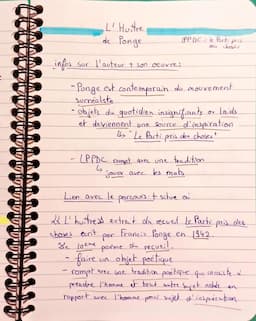 L'Huître
de Ponge
LPPDC : le Parti pris
des choses
infos sur l'auteur + son oeuvre :
- Ponge est contemporain du mouvement
surréaliste
- objets du quotidien insignifiants or laids
et deviennent une source d'inspiration
↳ "Le Parti pris des choses"
- LPPDC rompt avec une tradition
↳ jouer avec les mots
Lien avec le parcours +
"L'huître" extrait du recueil Le Parti pris des
choses écrit par Francis Ponge en 1942.
Le 10ème poème du recueil.
- faire un objet poétique
- rompt avec une tradition poétique qui consiste à
prendre l'homme et tout autre sujet noble en
rapport avec l'homme pour sujet d'inspiration